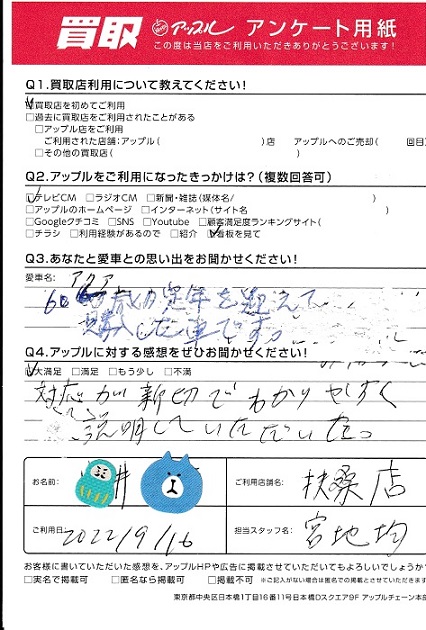 買取 アップル アンケート用紙
この度は当店をご利用いただきありがとうございます！
Q1.買取店利用について教えてください！
買取店を初めてご利用
□過去に買取店をご利用されたことがある
□アップル店をご利用
ご利用された店舗:アップル( )店 アップルへのご売却( 回目)
□その他の買取店( )
Q2.アップルをご利用になったきっかけは？(複数回答可)
テレビCM □ラジオCM □新聞・雑誌(媒体名/ )
□アップルのホームページ □インターネット(サイト名 )
□Googleクチコミ □SNS □Youtube □顧客満足度ランキングサイト(
□チラシ □利用経験があるので □紹介 看板を見て
Q3.あなたと愛車との思い出をお聞かせください！
愛車名: アクア
定年を迎えて
購入した車です。
Q4.アップルに対する感想をぜひお聞かせください！
大満足 □満足 □もう少し □不満
対応が親切でわかりやすく
説明していただいた。
お名前: 井 ご利用店舗名: 扶桑店
ご利用日 2022/9/16 担当スタッフ名: 宮地 均
お客様に書いていただいた感想を、アップルHPや広告に掲載させていただいてもよろしいでしょうか
□実名で掲載可 □匿名なら掲載可 □掲載不可 ※ご記入がない場合は匿名での掲載とさせていただきます
東京都中央区日本橋1丁目16番11号日本橋Dスクエア9F アップルチェーン本部